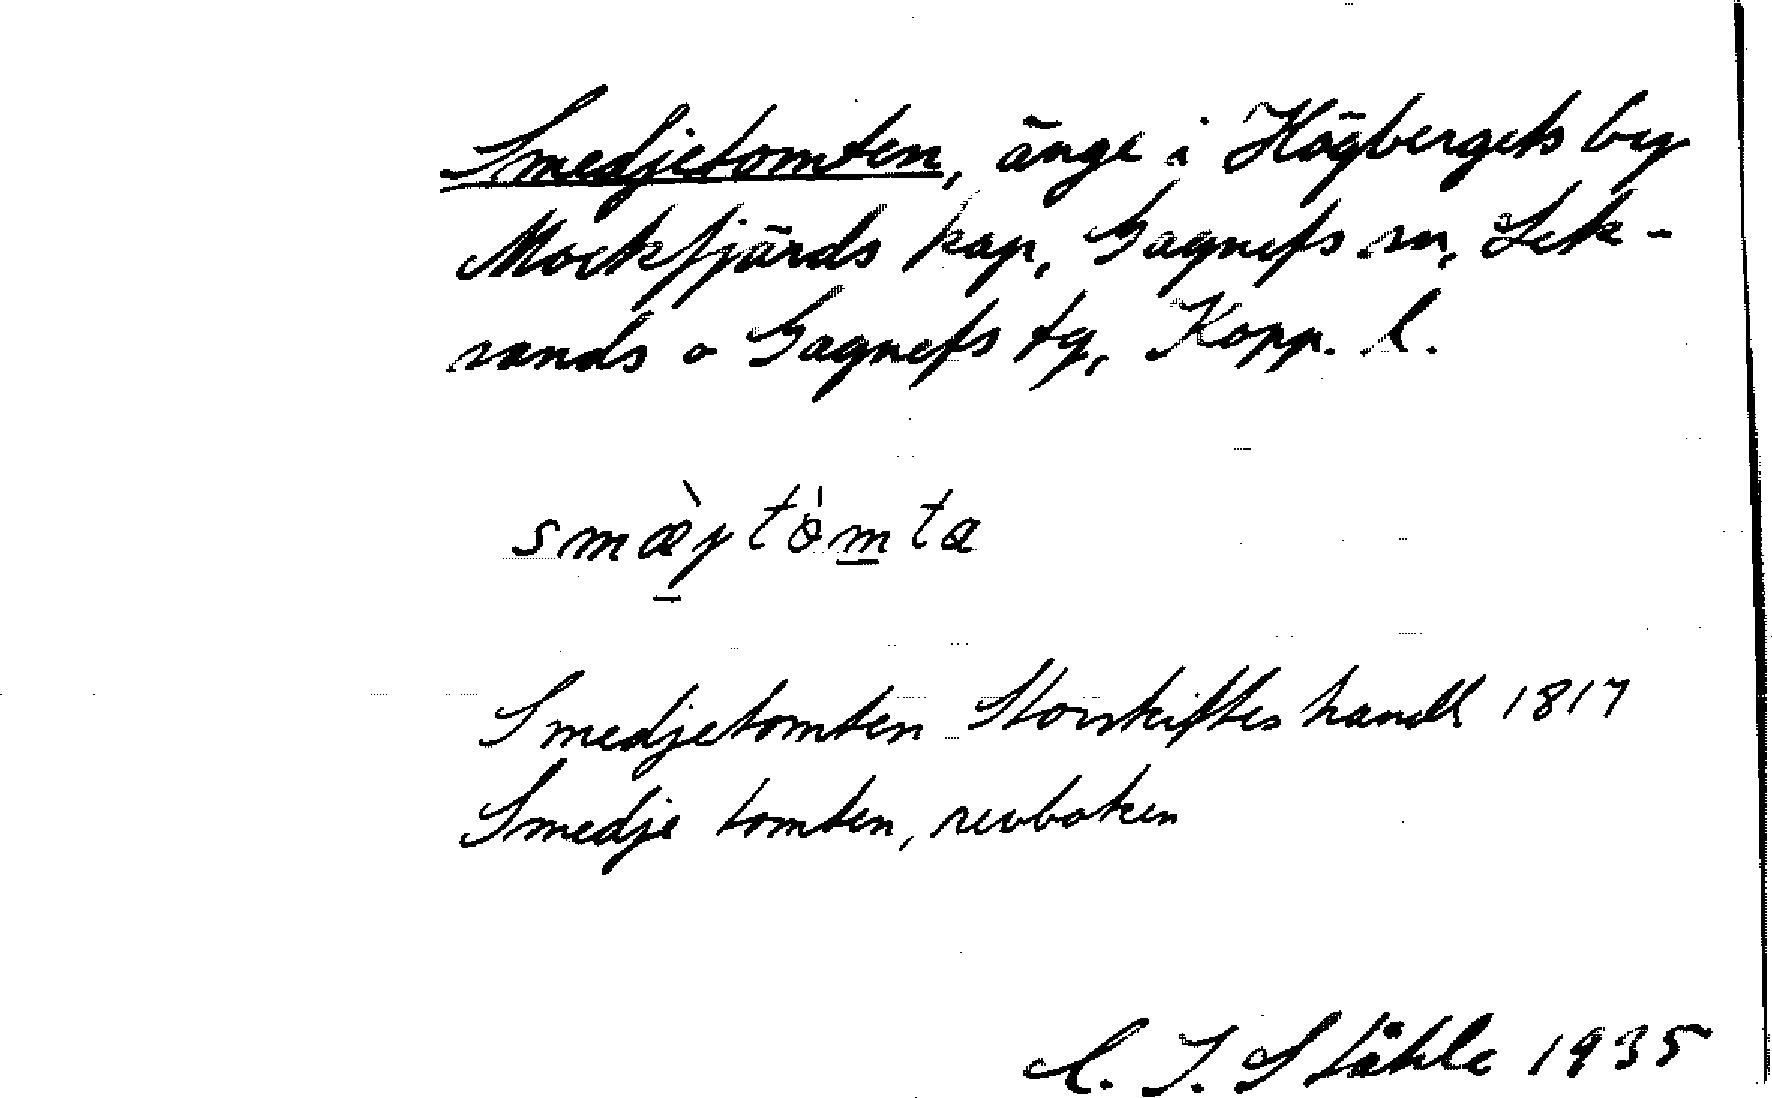 Smedjetomten, änge i Högbergets by
Mockfjärds kap, Gagnefs sn, Lek-
sands o Gagnefs tg, Kopp. l.
smæ̀ytòmta
Smedjetomten Storskiftes handl 1817
Smedje tomten, revboken
C. I. Ståhle 1935